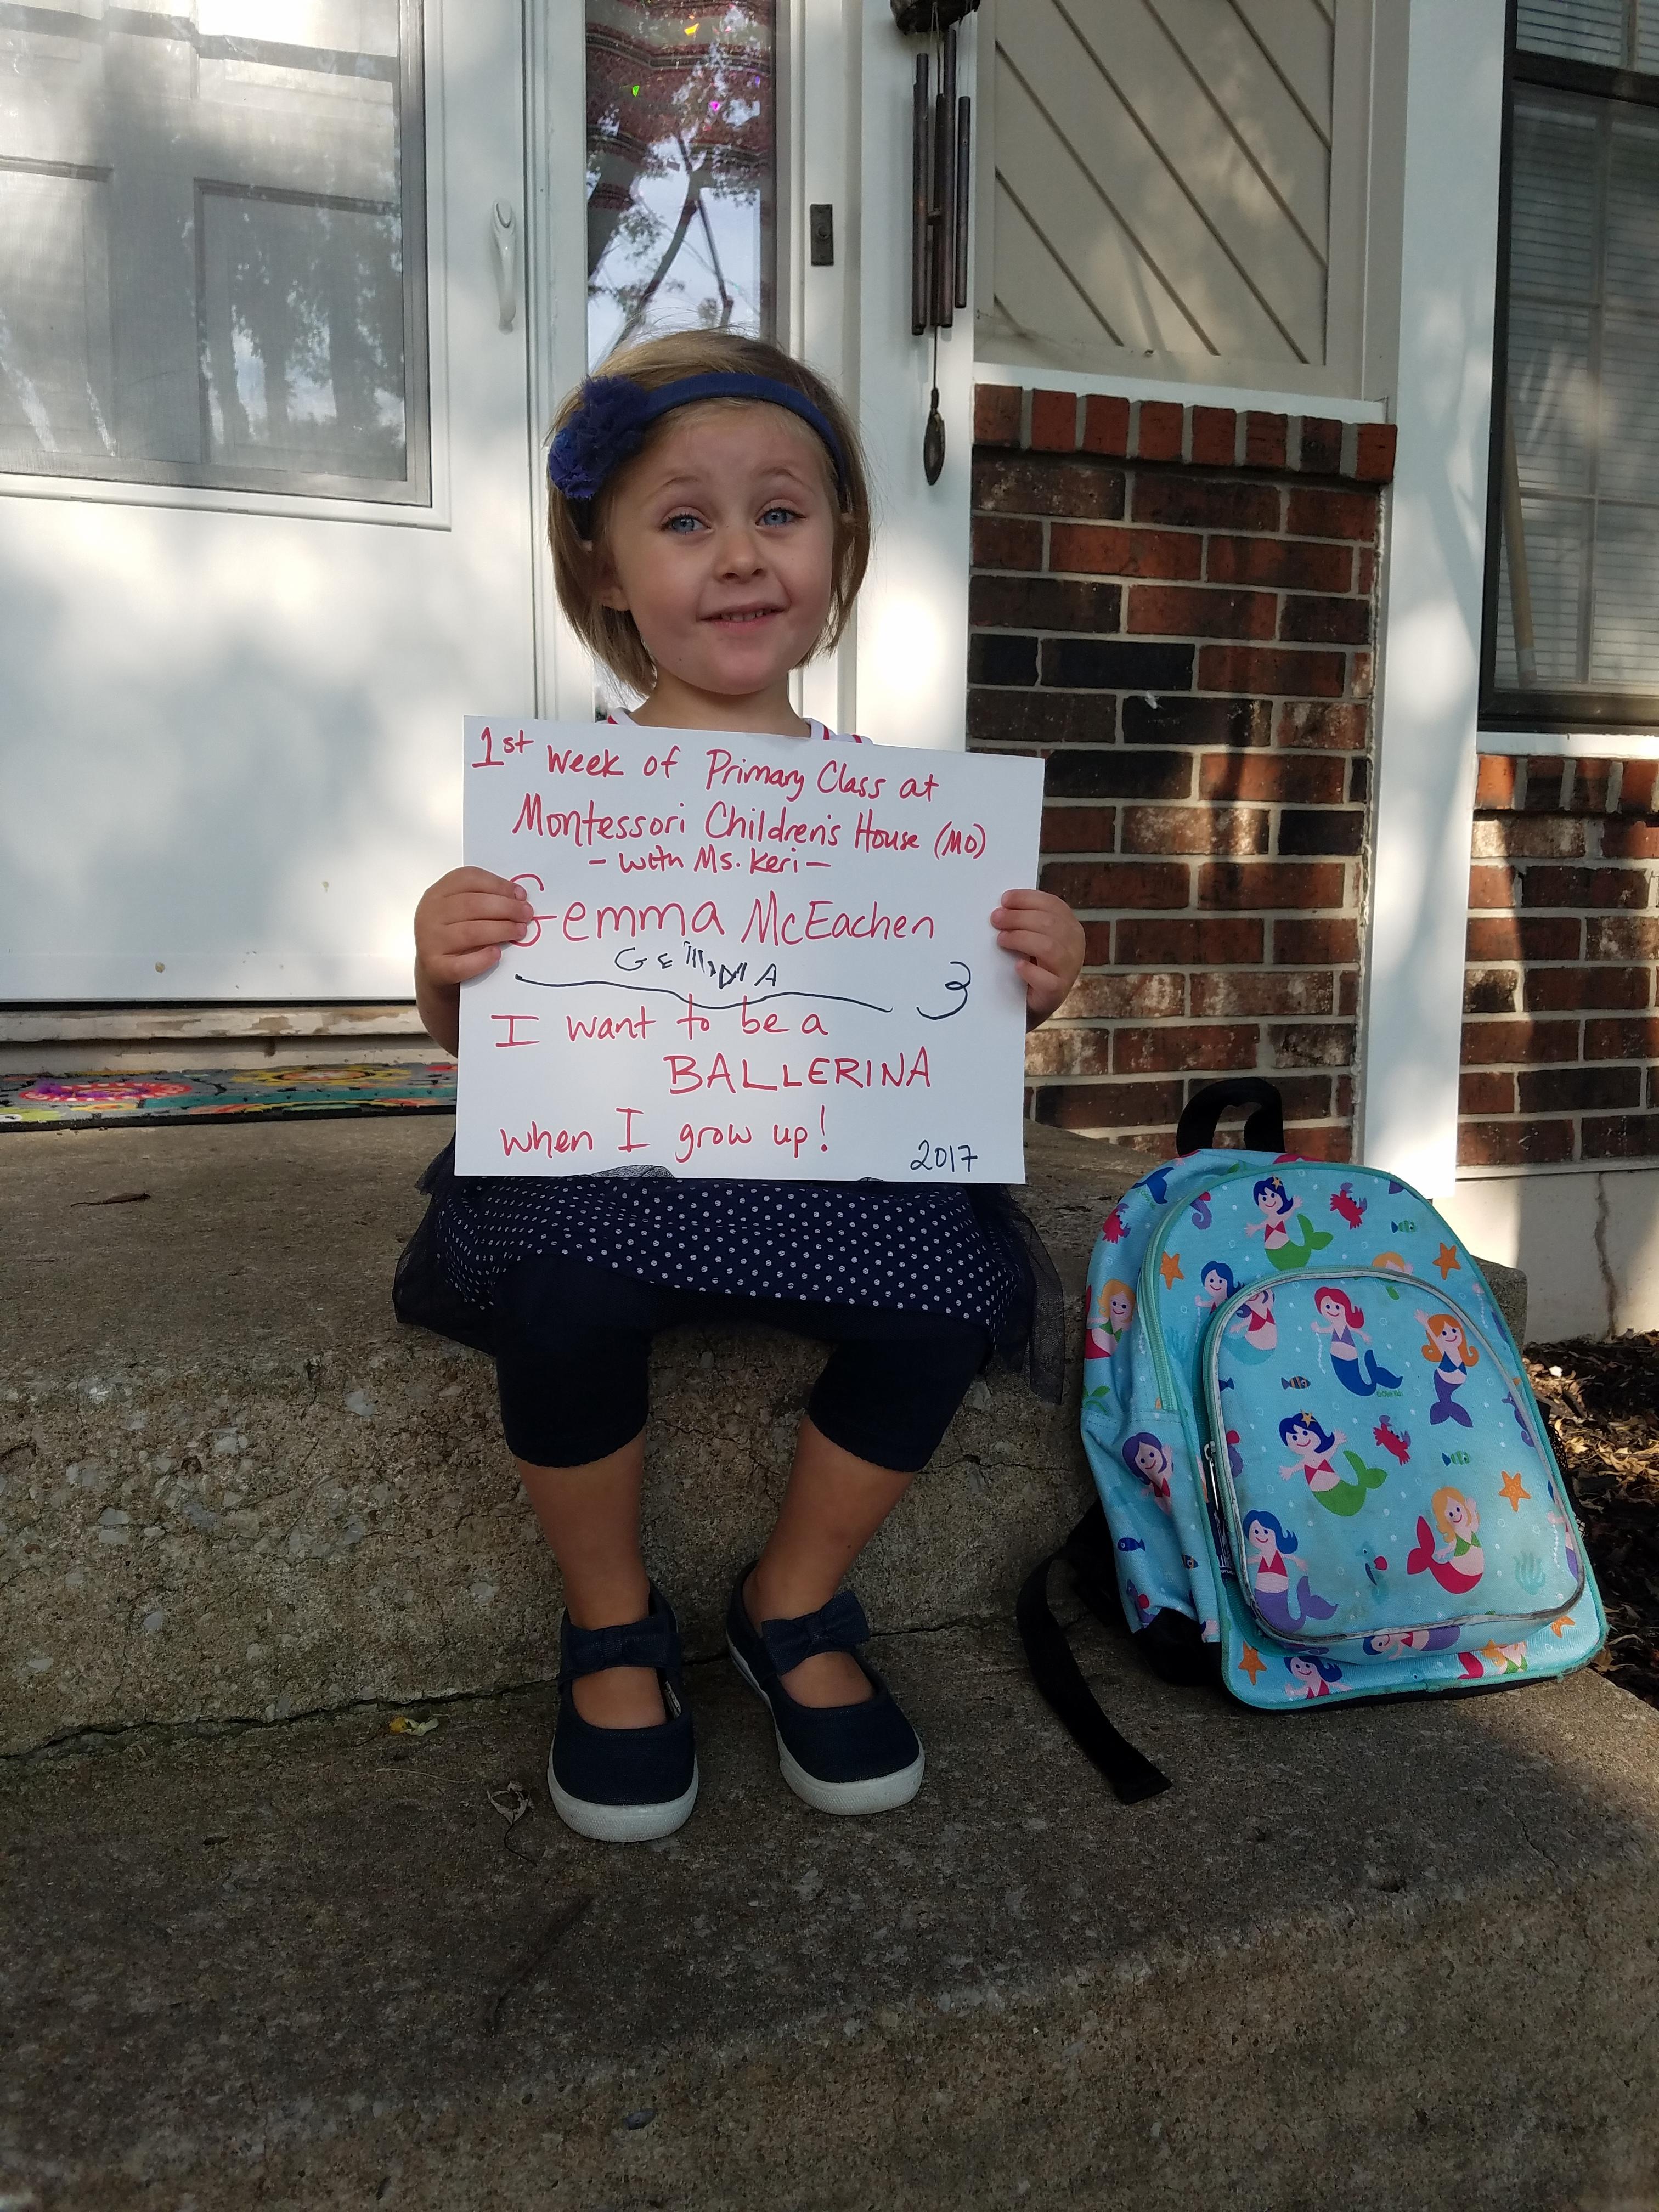 1st Week of Primary Class at
Montessori Children's House (MO)
- with Ms. Keri -
Gemma McEachen
GEMMA
3
I want to be a
BALLERINA
when I grow up!
2017